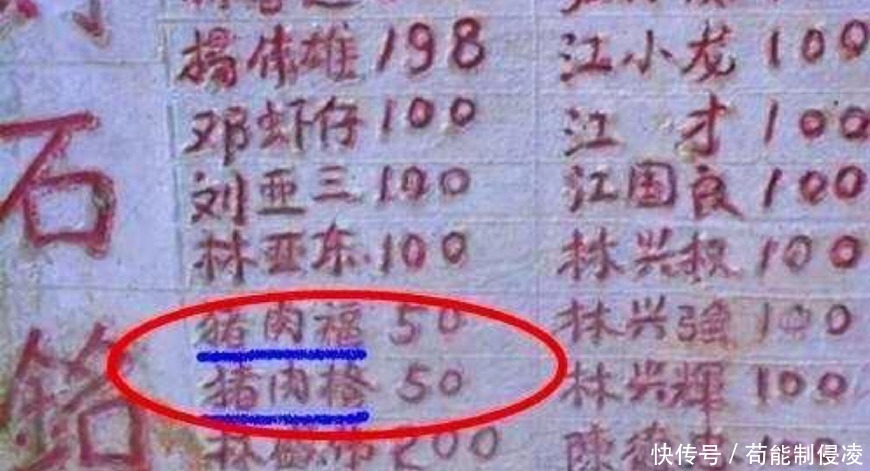 杨伟雄 198 江小龙 100
邓虾仔 100 江才 100
石
刘亚三 100 江国良 100
林亚东 100 林兴权 100
猪肉福 50 林兴强 100
铭
猪肉 50 林兴辉 100
200 陳德
快传号 / 苟能制侵凌